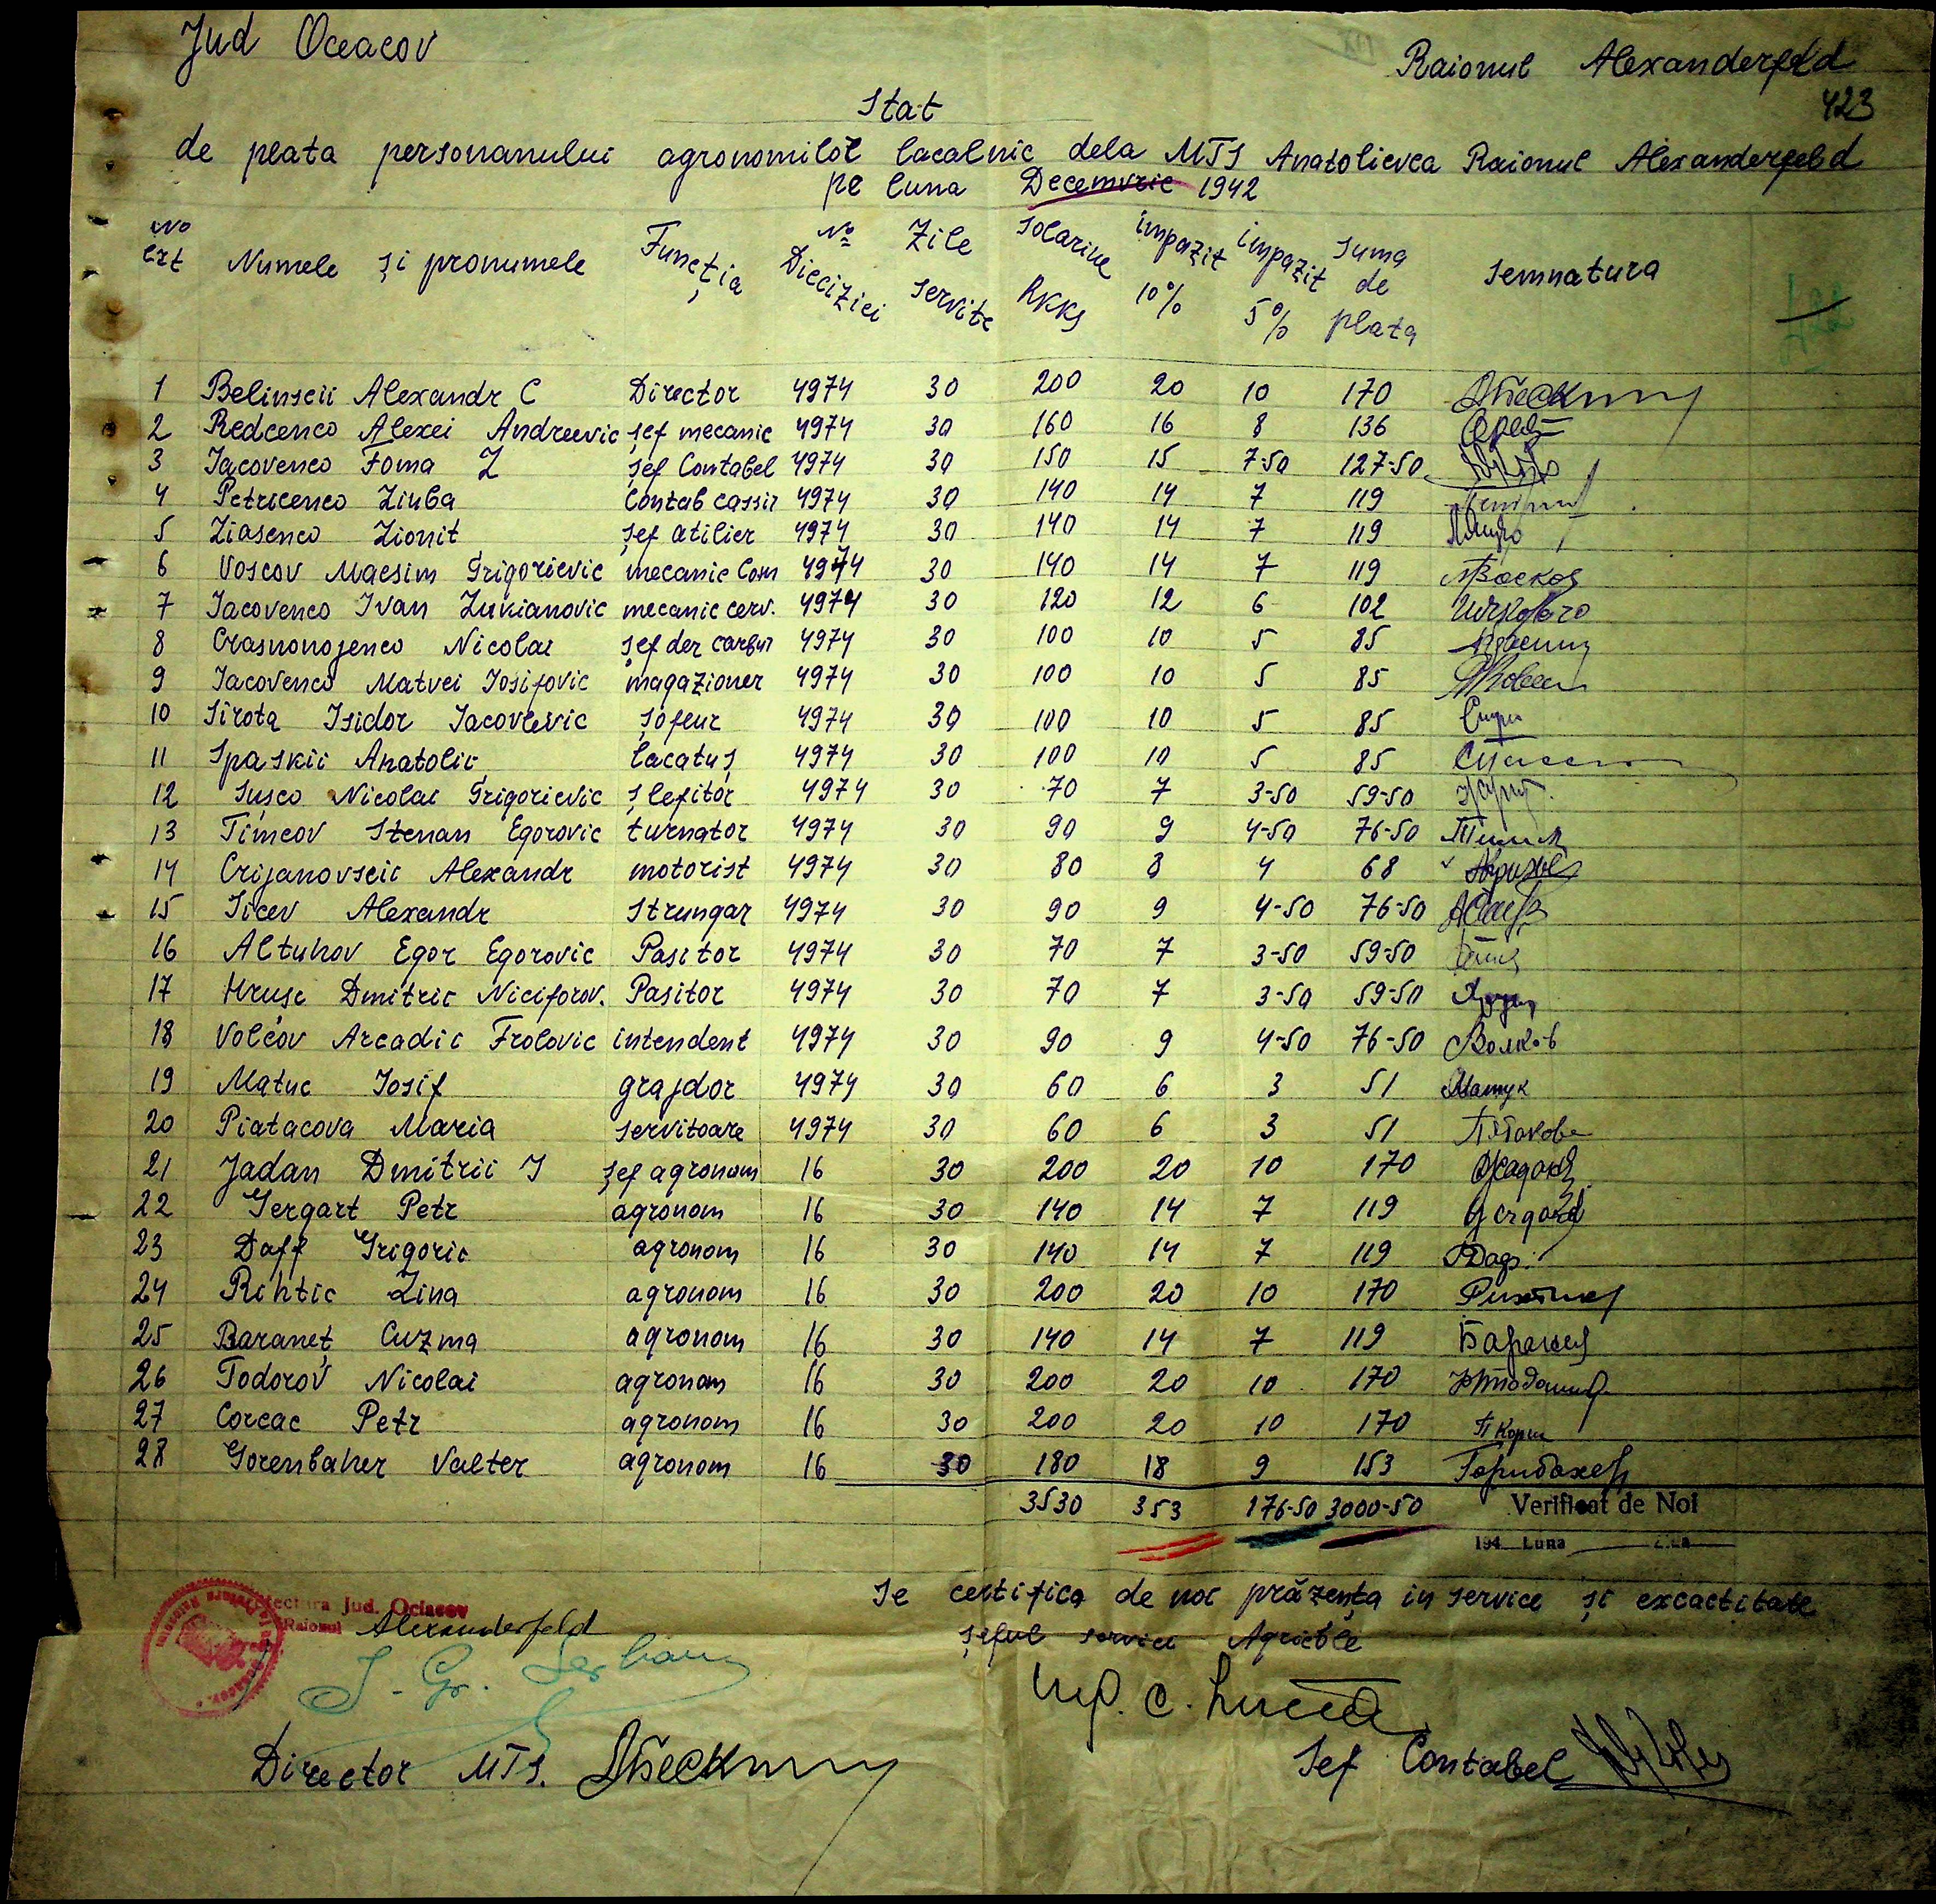 Jud Oceacov
Raionul Alexanderfeld
423
Stat
de plata personanului agronomilor lacalnic dela MTS Anatolievca Raionul Alexanderfeld
pe luna Decemvrie 1942
No crt Numele și pronumele Funcția No Diecizici Zile servite Solariul RKKS impozit 10% impozit 5% Suma de plata Semnatura
1 Belinscii Alexandr C Director 4974 30 200 20 10 170
2 Redcenco Alexei Andreevic șef mecanic 4974 30 160 16 8 136
3 Iacovenco Foma L șef Contabel 4974 30 150 15 7-50 127-50
4 Petricenco Liuba Contab cassir 4974 30 140 14 7 119
5 Liasenco Lionit șef atilier 4974 30 140 14 7 119
6 Voscov Macsim Grigorievic mecanic Com 4974 30 140 14 7 119 Восков
7 Iacovenco Ivan Lukianovic mecanic cerv. 4974 30 120 12 6 102
8 Crasnonojenco Nicolai șef der carbur 4974 30 100 10 5 85
9 Iacovenco Matvei Iosifovic magazioner 4974 30 100 10 5 85
10 Sirota Isidor Iacovlevic șofeur 4974 30 100 10 5 85
11 Spaskii Anatolii lacatuș 4974 30 100 10 5 85
12 Sușco Nicolai Grigorievic șlefitor 4974 30 70 7 3-50 59-50
13 Timcov Stenan Egorovic turnator 4974 30 90 9 4-50 76-50
14 Crijanovscii Alexandr motorist 4974 30 80 8 4 68
15 Sicev Alexandr Strungar 4974 30 90 9 4-50 76-50
16 Altuhov Egor Egorovic Pasitor 4974 30 70 7 3-50 59-50
17 Hrușc Dmitric Niciforov. Pasitor 4974 30 70 7 3-50 59-50
18 Volcov Arcadii Frolovic intendent 4974 30 90 9 4-50 76-50 Волков
19 Matuc Iosif grajdor 4974 30 60 6 3 51 Матук
20 Piatacova Maria servitoare 4974 30 60 6 3 51 Пятакова
21 Jadan Dmitrii I șef agronom 16 30 200 20 10 170
22 Gergart Petr agronom 16 30 140 14 7 119
23 Daff Grigoric agronom 16 30 140 14 7 119
24 Rihtic Lina agronom 16 30 200 20 10 170
25 Baraneț Cuzma agronom 16 30 140 14 7 119
26 Todorov Nicolai agronom 16 30 200 20 10 170
27 Corcac Petr agronom 16 30 200 20 10 170
28 Gorenbaher Valter agronom 16 30 180 18 9 153
3530 353 176-50 3000-50
Verificat de Noi
194 Luna Ziua
Se certifica de noi prăzența in service și excactitate
șeful servici Agricole
Prefectura Jud. Oceacov
Raionul Alexanderfeld
Director MTS.
Șef Contabel